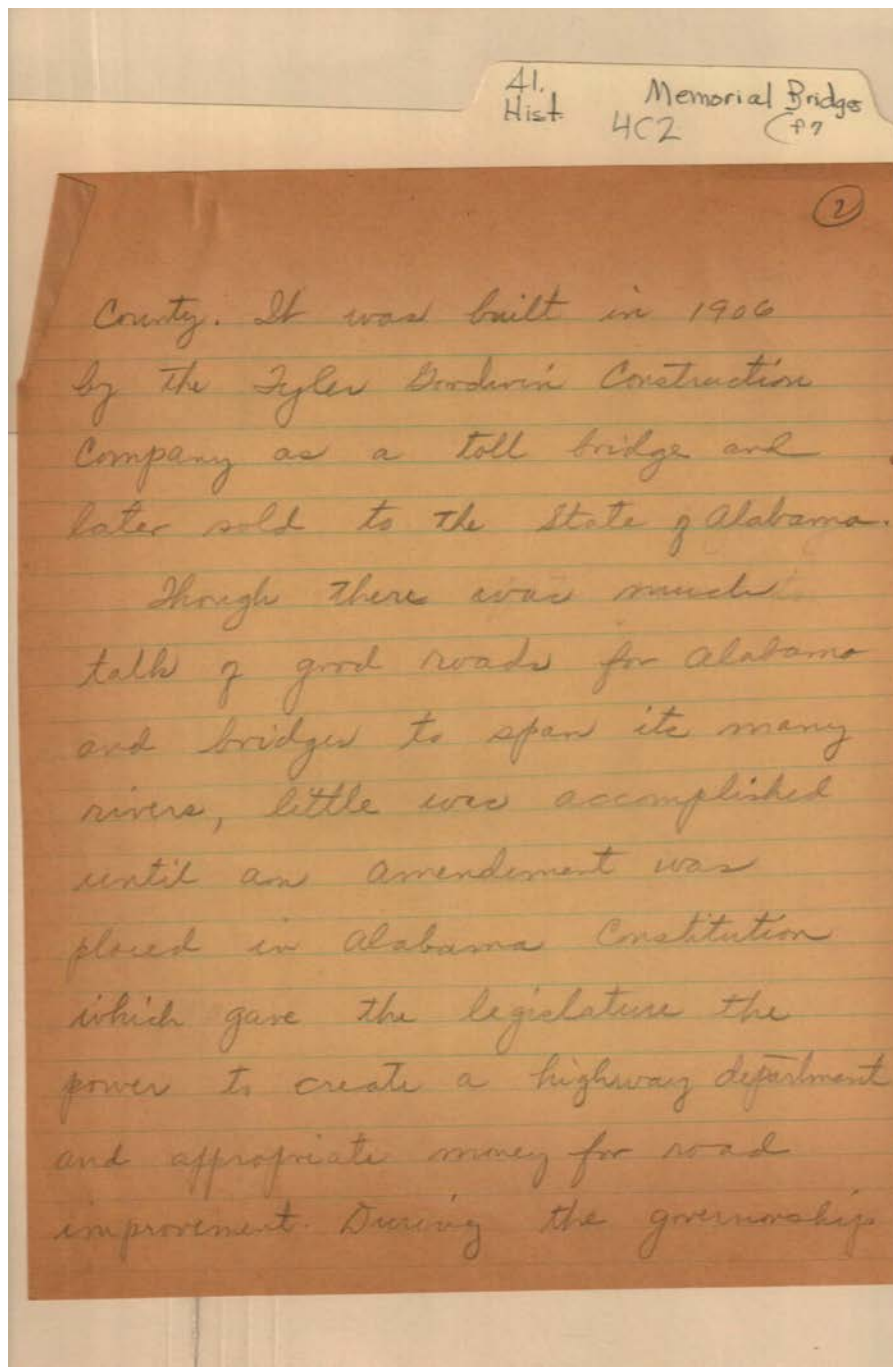 Al.
Hist.
Memorial Bridges
4C2
(P7
2
County. It was built in 1906
by the Tyler Goodwin Construction
Company as a toll bridge and
later sold to the State of Alabama.
Though there was much
talk of good roads for Alabama
and bridges to span its many
rivers, little was accomplished
until an amendment was
placed in Alabama Constitution
which gave the legislature the
power to create a highway department
and appropriate money for road
improvement. During the governorship